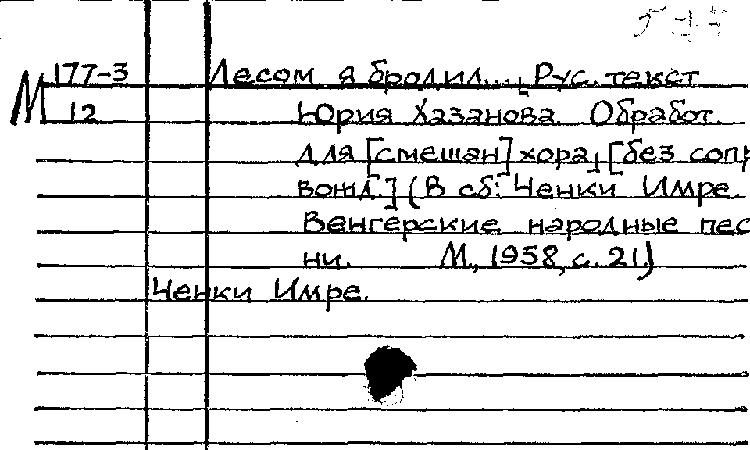 177-3 Лесом я бродил... Рус. текст
М 12 Юрия Хазанова. Обработ.
для [смешан] хора, [без сопр
вожд.] (В сб: Ченки Имре.
Венгерские народные пес
ни. М., 1958, с. 21.)
Ченки Имре.